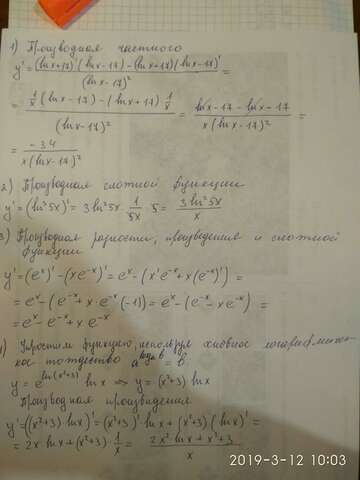 1) Производная частного
y' = ((ln x+17)'(ln x-17) - (ln x+17)(ln x-17)')/(ln x-17)² =
= (1/x (ln x-17) - (ln x+17) 1/x)/(ln x-17)² = (ln x-17-ln x-17)/(x(ln x-17)²) =
= -34/(x(ln x-17)²)
2) Производная сложной функции
y' = (ln³5x)' = 3ln²5x · 1/5x · 5 = 3ln²5x/x
3) Производная разности, произведения и сложной
функции
y' = (eˣ)' - (xe⁻ˣ)' = eˣ - (x'e⁻ˣ + x(e⁻ˣ)') =
= eˣ - (e⁻ˣ + x·e⁻ˣ(-1)) = eˣ - (e⁻ˣ - xe⁻ˣ) =
= eˣ - e⁻ˣ + x e⁻ˣ
) Упростим функцию, используя основное логарифмичес-
кое тождество a^(log_a b) = b.
y = e^(ln(x²+3)) ln x ⇒ y = (x²+3) ln x
Производная произведения
y' = ((x²+3) ln x)' = (x²+3)' ln x + (x²+3)(ln x)' =
= 2x · ln x + (x²+3) · 1/x = (2x² ln x + x²+3)/x
2019-3-12 10:03